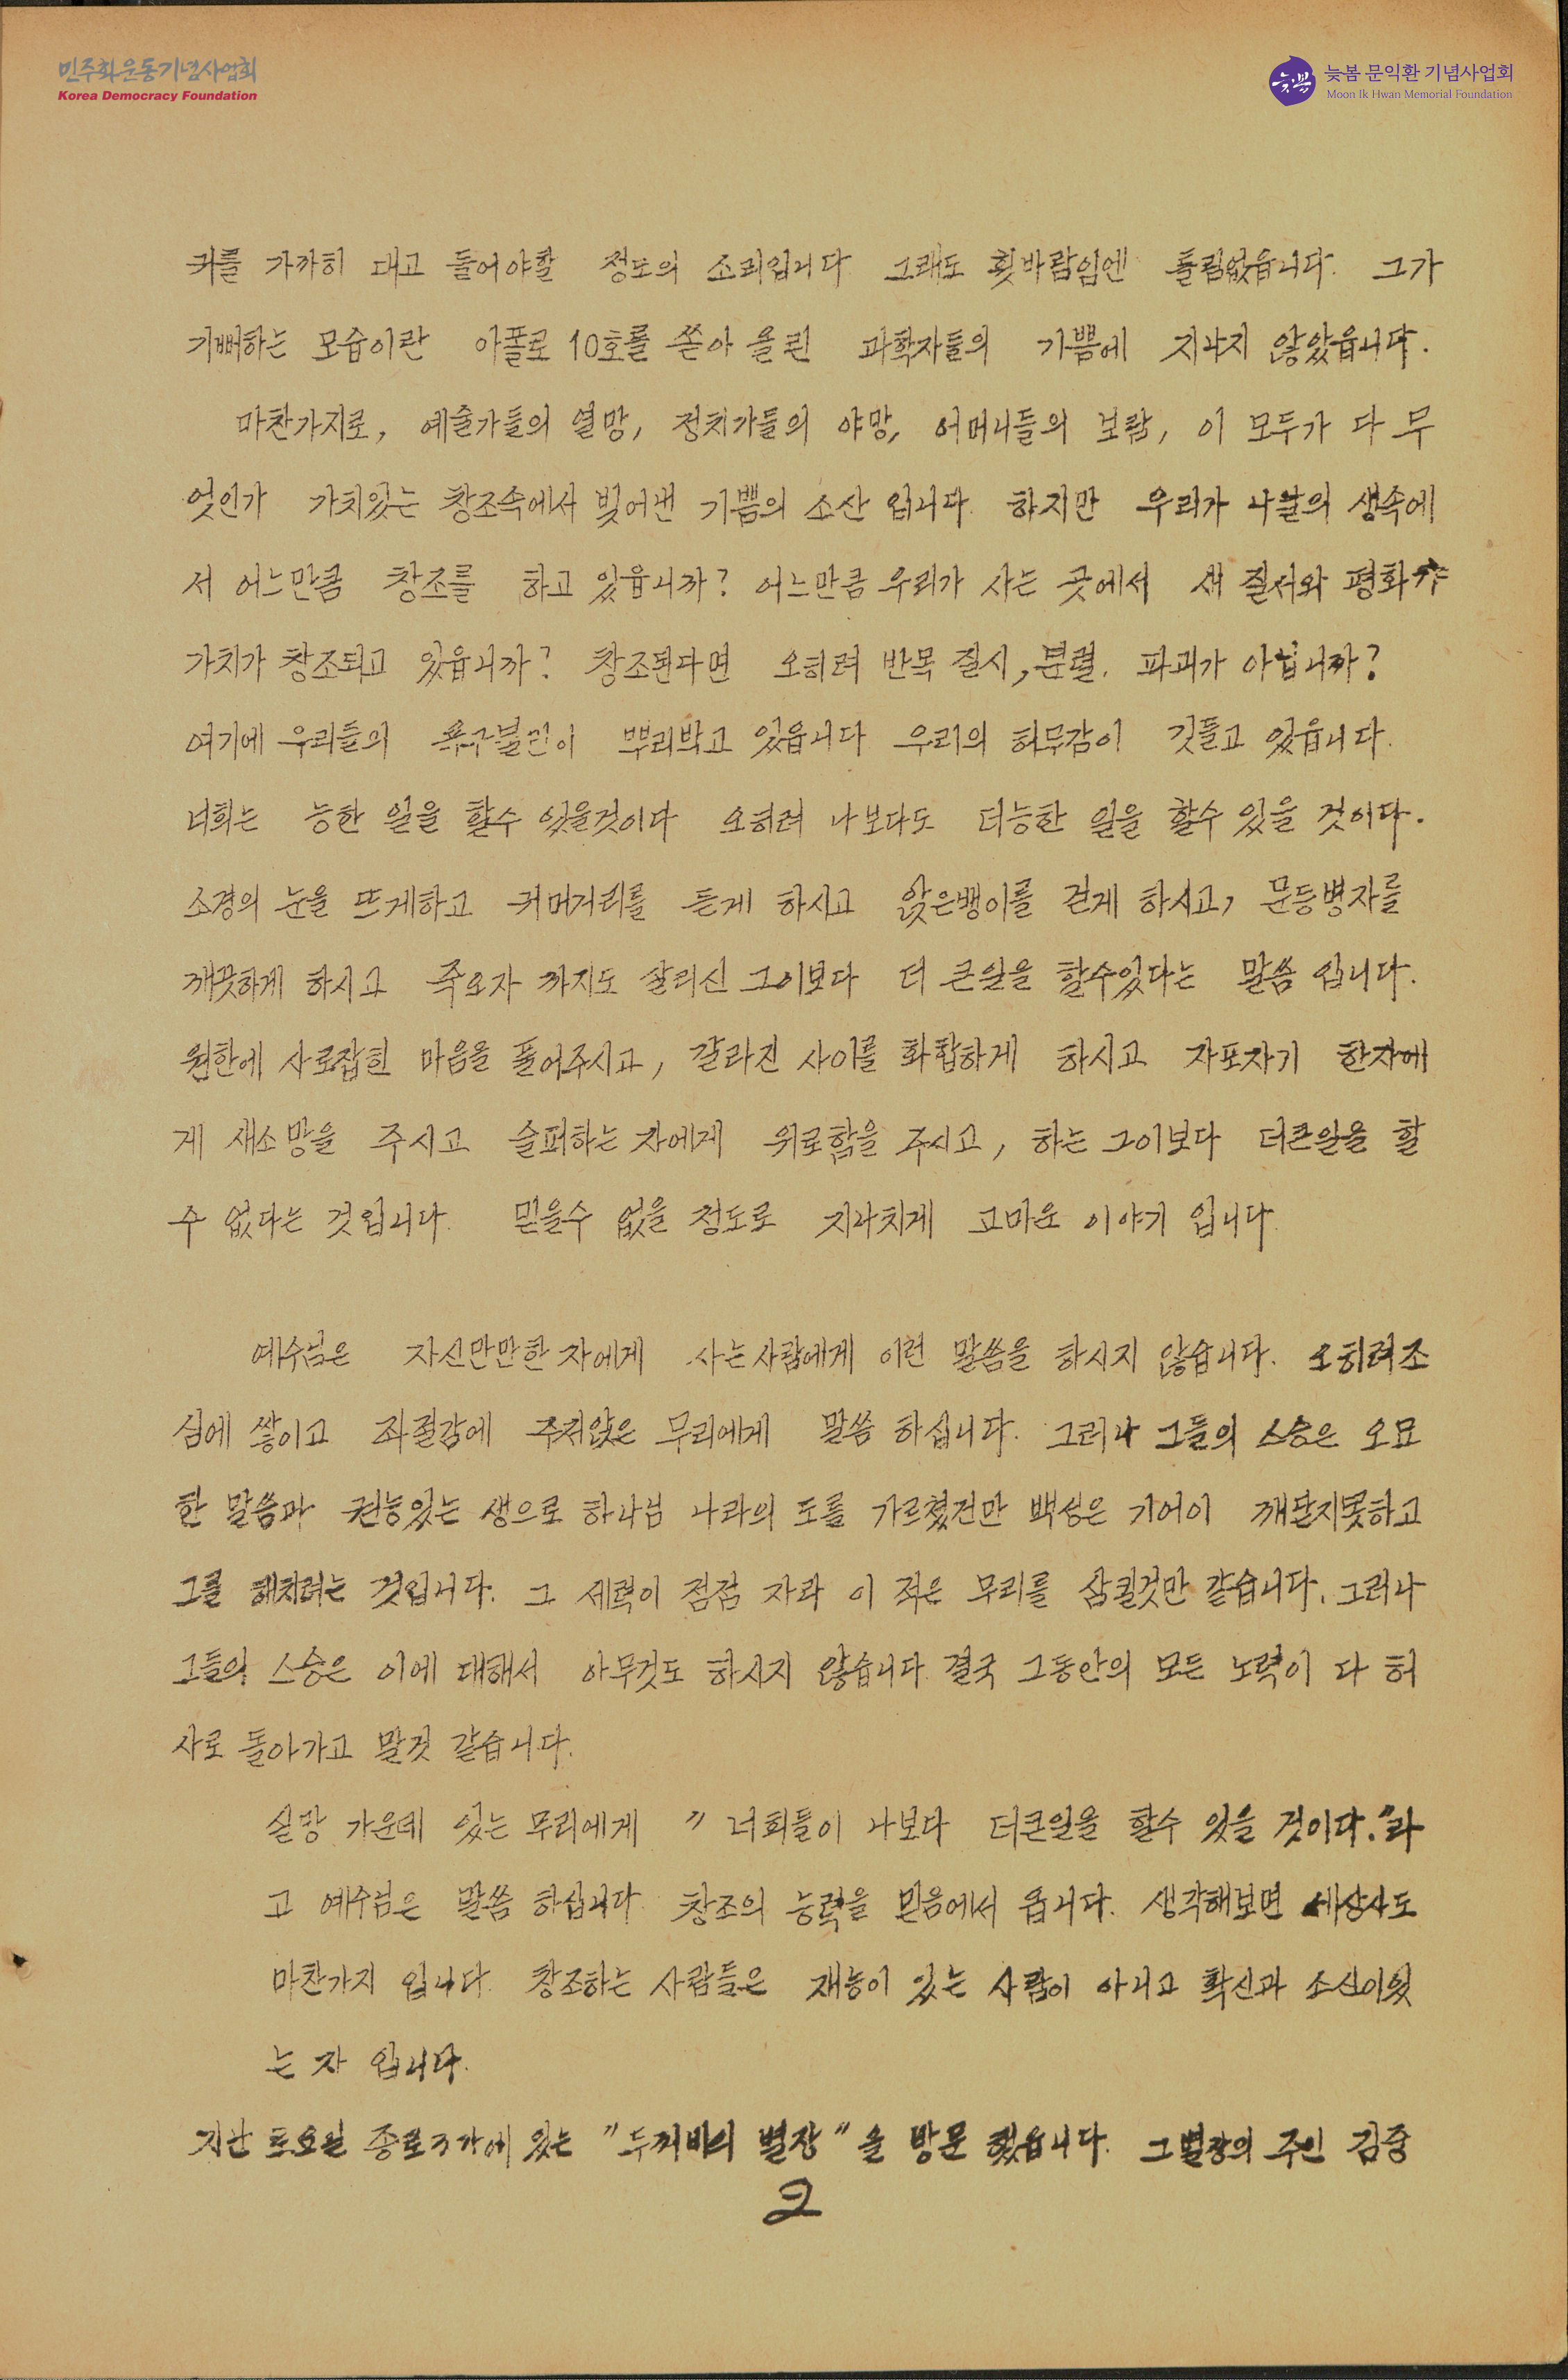 민주화운동기념사업회
Korea Democracy Foundation
늦봄
늦봄 문익환 기념사업회
Moon Ik Hwan Memorial Foundation
귀를 가까히 대고 들어야할 정도의 소리입니다 그래도 휫바람임엔 틀림없읍니다. 그가
기뻐하는 모습이란 아폴로 10호를 쏟아 올린 과학자들의 기쁨에 지나지 않았읍니다.
마찬가지로, 예술가들의 열망, 정치가들의 야망, 어머니들의 보람, 이 모두가 다 무
엇인가 가치있는 창조속에서 빚어낸 기쁨의 소산 입니다. 하지만 우리가 나날의 생속에
서 어느만큼 창조를 하고 있읍니까? 어느만큼 우리가 사는 곳에서 새 질서와 평화가
가치가 창조되고 있읍니까? 창조된다면 오히려 반목 질시, 분렬. 파괴가 아닙니까?
여기에 우리들의 욕구불만이 뿌리박고 있읍니다 우리의 허무감이 깃들고 있읍니다.
너희는 능한 일을 할수 있을것이다 오히려 나보다도 더능한 일을 할수 있을 것이다.
소경의 눈을 뜨게하고 귀머거리를 듣게 하시고 앉은뱅이를 걷게 하시고, 문둥병자를
깨끗하게 하시고 죽으자 까지도 살리신 그이보다 더 큰일을 할수있다는 말씀 입니다.
원한에 사로잡힌 마음을 풀어주시고, 갈라진 사이를 화합하게 하시고 자포자기 한자에
게 새소망을 주시고 슬퍼하는 자에게 위로함을 주시고, 하는 그이보다 더큰일을 할
수 없다는 것입니다. 믿을수 없을 정도로 지나치게 고마운 이야기 입니다.
예수님은 자신만만한 자에게 사는사람에게 이런 말씀을 하시지 않습니다. 오히려조
심에 쌓이고 좌절감에 주저앉은 무리에게 말씀 하십니다. 그러나 그들의 스승은 오묘
한 말씀과 권능있는 생으로 하나님 나라의 도를 가르쳤건만 백성은 기어이 깨닫지못하고
그를 해치려는 것입니다. 그 세력이 점점 자라 이 적은 무리를 삼킬것만 같습니다. 그러나
그들의 스승은 이에 대해서 아무것도 하시지 않습니다 결국 그동안의 모든 노력이 다 허
사로 돌아가고 말것 같습니다.
실망 가운데 있는 무리에게 "너희들이 나보다 더큰일을 할수 있을 것이다."라
고 예수님은 말씀 하십니다. 창조의 능력을 믿음에서 옵니다. 생각해보면 세상사도
마찬가지 입니다. 창조하는 사람들은 재능이 있는 사람이 아니고 확신과 소신이있
는 자 입니다.
지난 토요일 종로3가에 있는 "두꺼비의 별장"을 방문 했읍니다. 그별장의 주인 김중
2